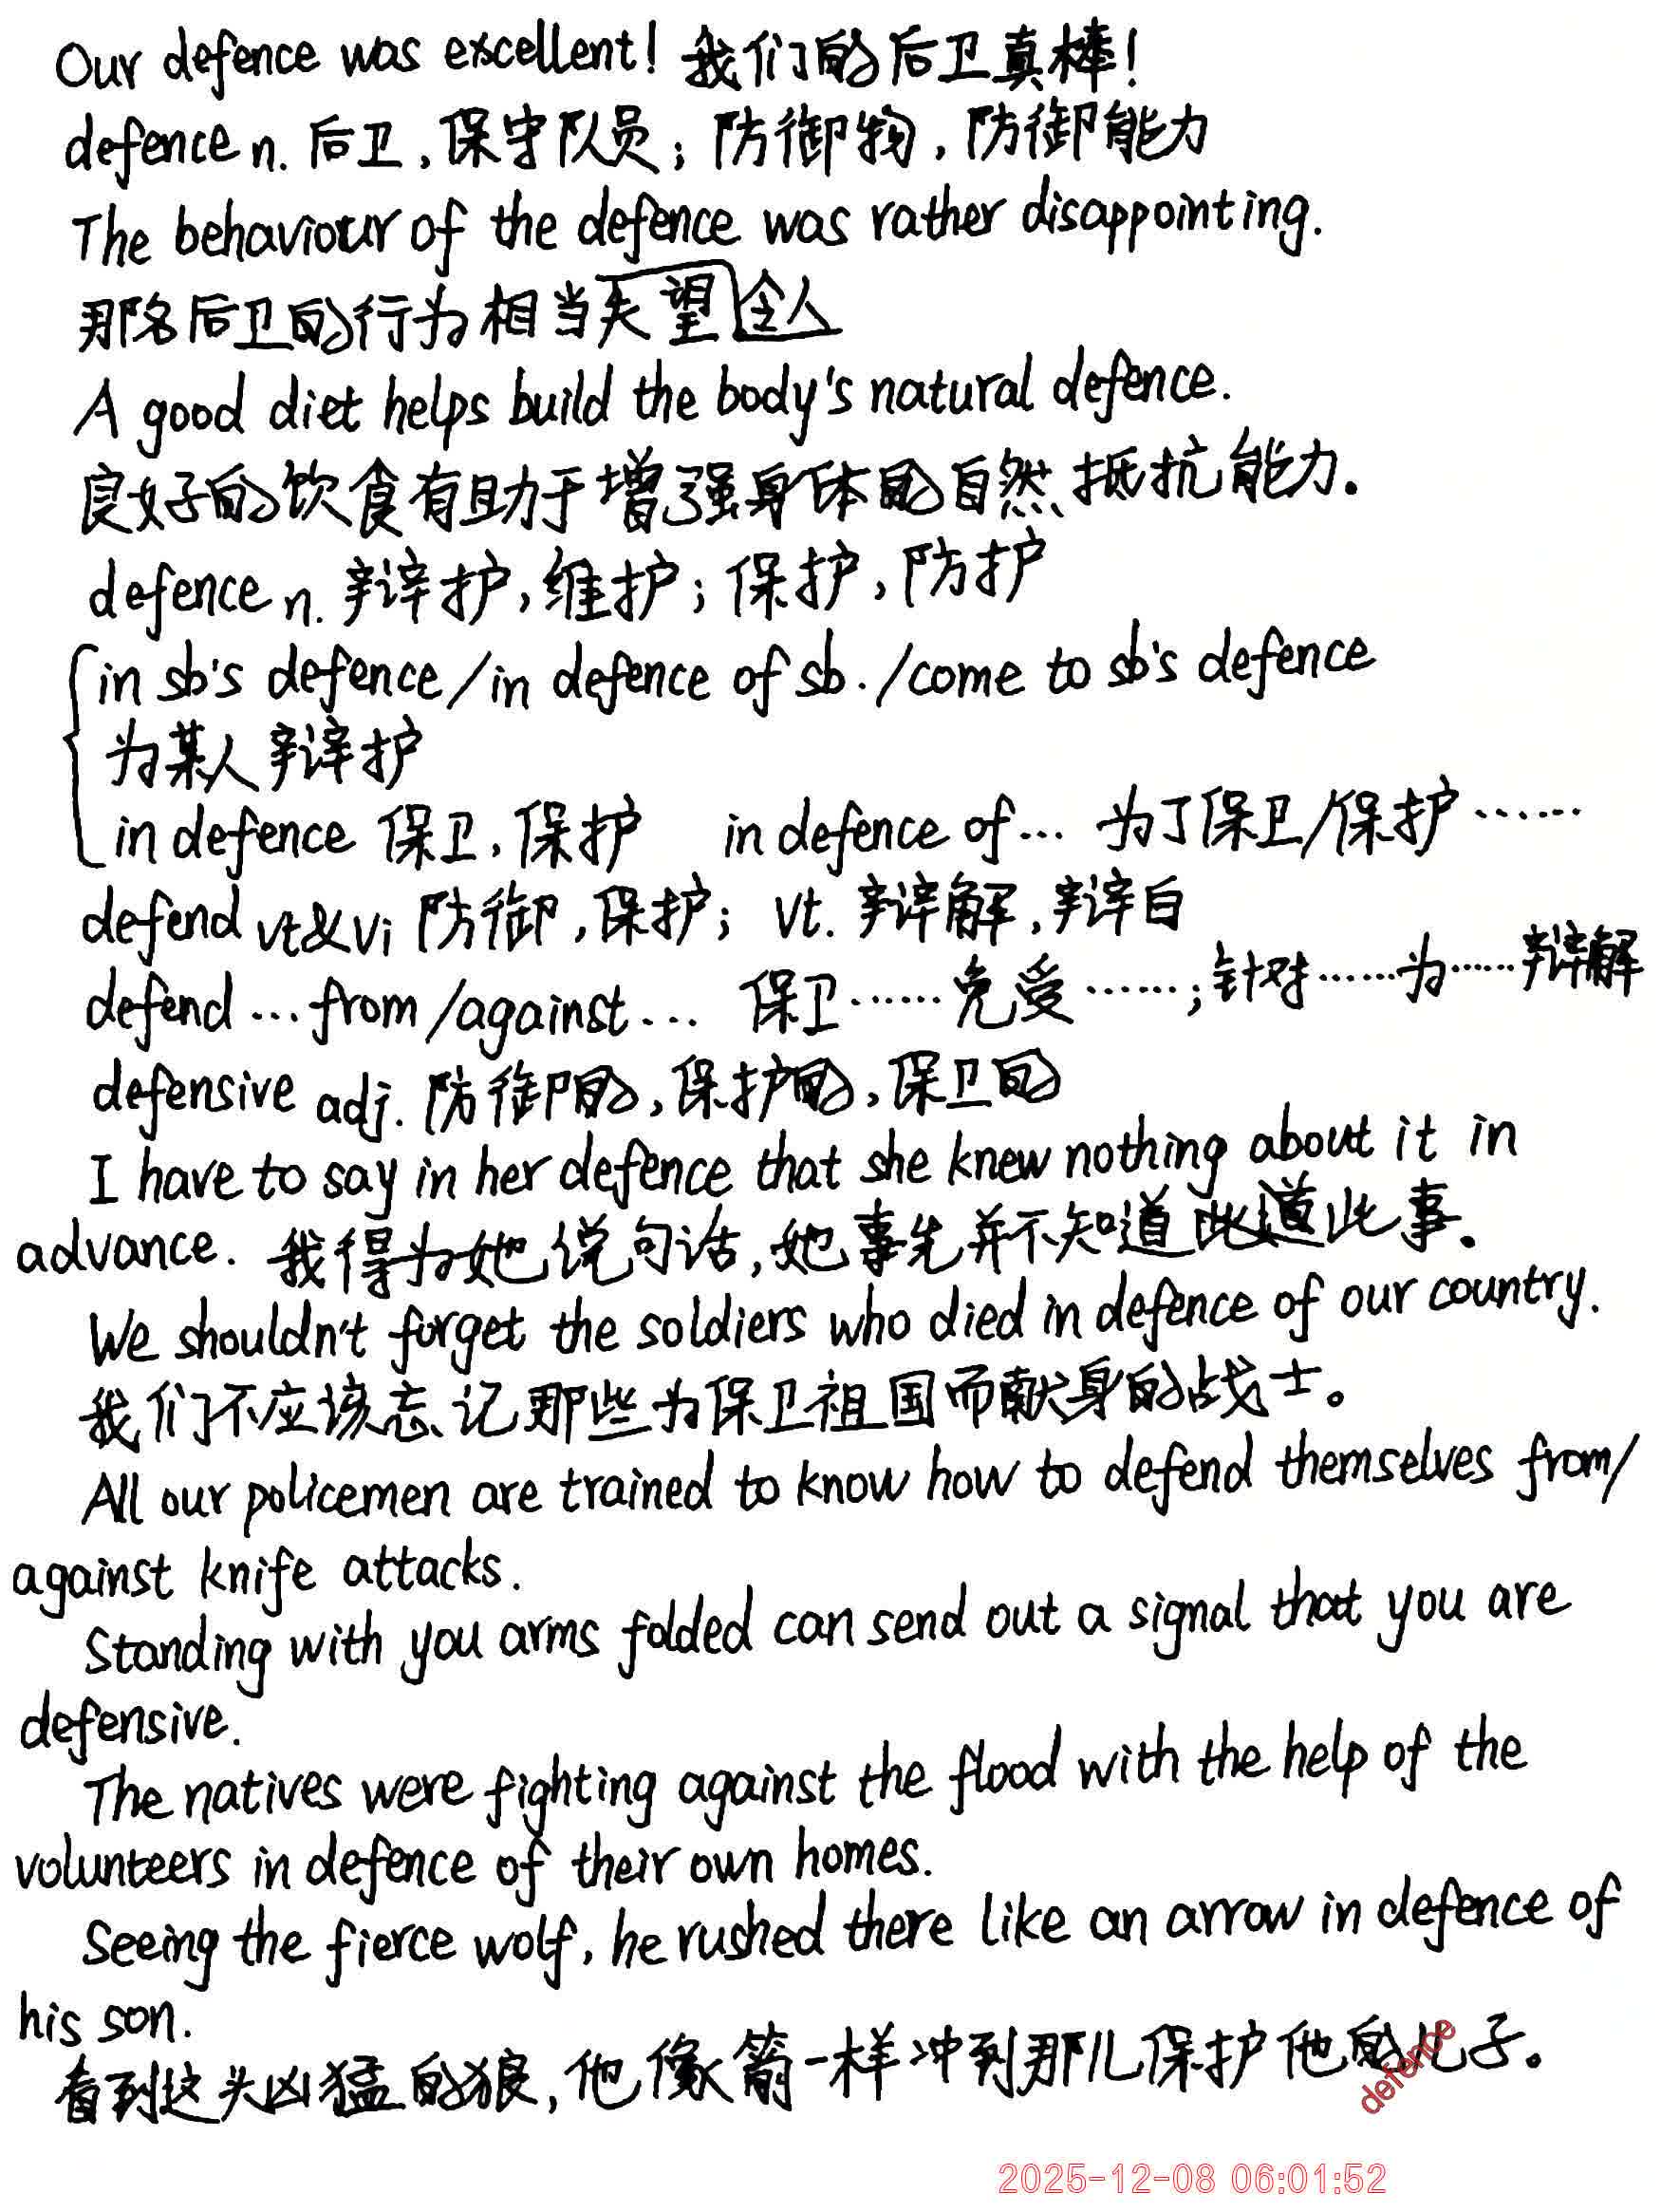 Our defence was excellent! 我们的后卫真棒!
defence n. 后卫,保守队员;防御物,防御能力
The behaviour of the defence was rather disappointing.
那名后卫的行为相当失望令人
A good diet helps build the body's natural defence.
良好的饮食有助于增强身体的自然抵抗能力.
defence n. 辩护,维护;保护,防护
in sb's defence/in defence of sb./come to sb's defence
为某人辩护
in defence 保卫,保护 in defence of... 为了保卫/保护……
defend vt&vi 防御,保护; vt. 辩解,辩白
defend...from/against... 保卫……免受……;针对……为……辩解
defensive adj. 防御的,保护的,保卫的
I have to say in her defence that she knew nothing about it in
advance. 我得为她说句话,她事先并不知道此道此事.
We shouldn't forget the soldiers who died in defence of our country.
我们不应该忘记那些为保卫祖国而献身的战士。
All our policemen are trained to know how to defend themselves from/
against knife attacks.
Standing with you arms folded can send out a signal that you are
defensive.
The natives were fighting against the flood with the help of the
volunteers in defence of their own homes.
Seeing the fierce wolf, he rushed there like an arrow in defence of
his son.
看到这头凶猛的狼,他像箭一样冲到那儿保护他的儿子。
defence
2025-12-08 06:01:52